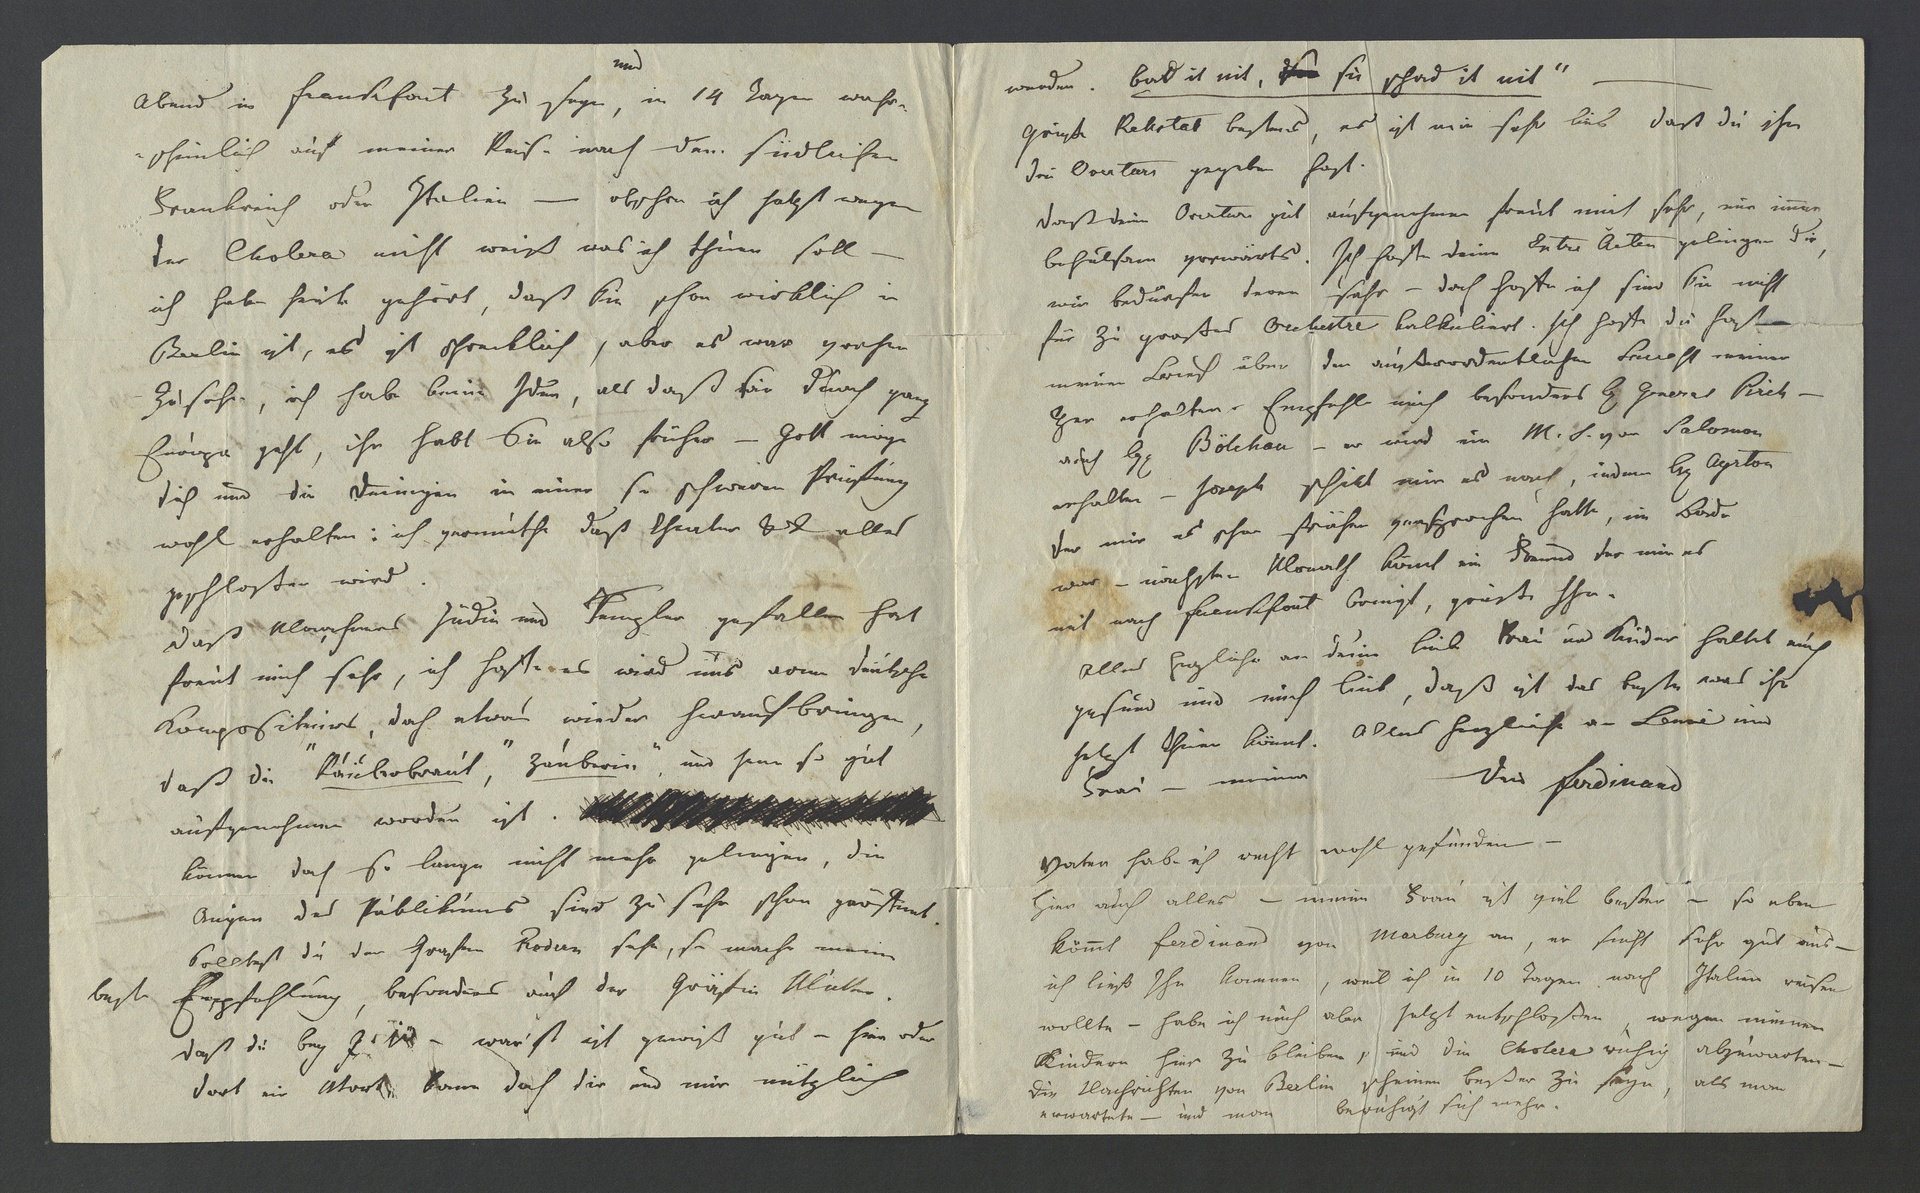 und
Abend in Frankfurt zu seyn, in 14 Tagen wahr-
-scheinlich auf meiner Reise nach dem südlichen
Frankreich oder Italien — obschon ich jetzt wegen
der Cholera nicht weiß was ich thun soll —
ich habe heute gehört, daß sie schon wirklich in
Berlin ist, es ist schrecklich, aber es war vorher
zu sehn, ich habe keine Idee, als daß sie durch ganz
Europa geht, ihr habt Sie also früher — Gott möge
dich und die Deinigen in einer so schweren Prüfung
wohl erhalten: ich vermuthe daß Theater &c &c alles
geschloßen wird.
Daß Marschners Jüdin und Templer gefallen hat
freut mich sehr, ich hoffe es wird uns arme deutsche
Kompositeurs, doch etwas wieder heraufbringen,
daß die "Räuberbraut", "Zauberin", und jene so gut
aufgenommen worden ist.
können doch so lange nicht mehr gelingen, die
Augen des Publikums sind zu sehr schon geöffnet.
Solltest du den Grafen Redern sehn, so mache meine
beste Empfehlung, besonders auch der Gräfin Mutter.
daß du bey warst ist gewiß gut — hier oder
dort ein Wort kann doch dir und mir nützlich
werden. bad it nit, so schad it nit" —
Grüße Rellstab bestens, es ist mir sehr lieb daß du ihm
die Ouverture gegeben hast.
Daß deine Ouverture gut aufgenommen freut mich sehr, nur immer
behutsam vorwärts. Ich hoffe deine Entre Acten gelingen dir,
wir bedürfen deren sehr — doch hoffe ich sind Sie nicht
für zu großes Orchestre kalkuliert. Ich hoffe du hast
meinen Brief über den außerordentlichen Succeß meiner
erhalten. Empfehle mich besonders H General Pirch —
auch H Pölchau — er wird ein M.S. von Salomon
erhalten — Joseph schikt mir es nach, indem H Ayrton
der mir es schon früher versprochen hatte, im Bade
war — nächsten Monath kömt ein Freund der mir es
mit nach Frankfurt bringt, grüße Ihn.
Alles herzliche an deine liebe Frau und Kinder haltet euch
gesund und mich lieb, daß ist das beste was ihr
jetzt thun könnt. Alles herzliche an und
Frau — immer Dein Ferdinand
Vater hab ich recht wohl gefunden —
Hier auch alles — meine Frau ist viel beßer — so eben
kömt Ferdinand von Marburg an, er sieht sehr gut aus —
ich ließ Ihn kommen, weil ich in 10 Tagen nach Italien reisen
wollte — habe ich mich aber jetzt entschloßen, wegen meinen
Kindern hier zu bleiben, und die Cholera ruhig abzuwarten —
die Nachrichten von Berlin scheinen beßer zu seyn, als man
erwartete — und man beruhigt sich mehr.